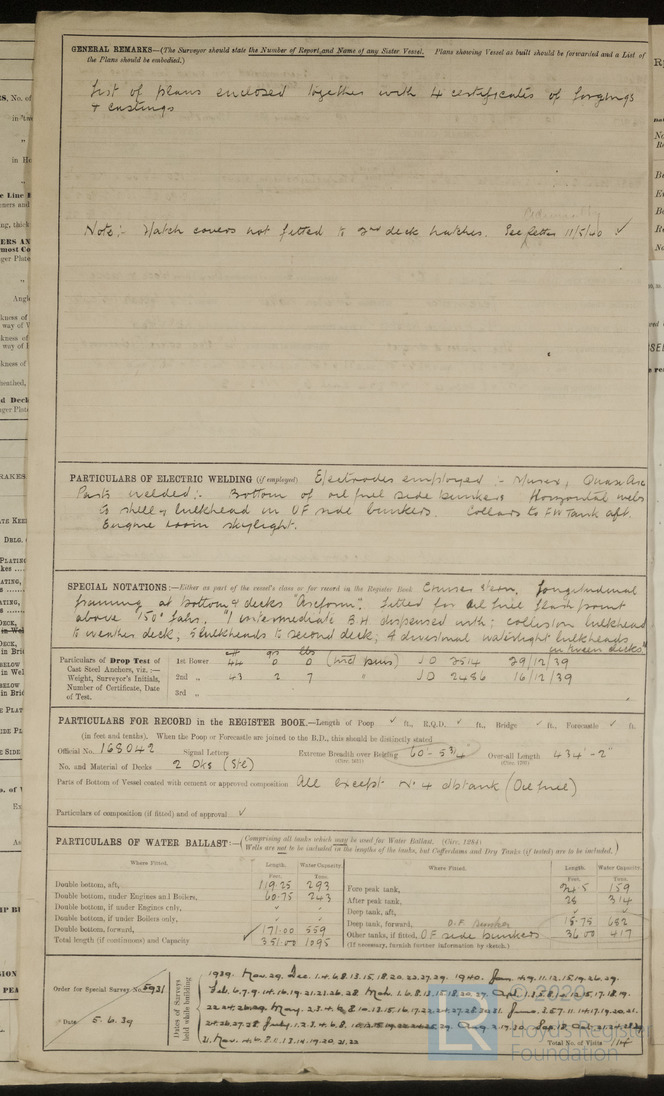 GENERAL REMARKS—(The Surveyor should state the Number of Report, and Name of any Sister Vessel. Plans showing Vessel as built should be forwarded and a List of
the Plans should be embodied.)
List of plans enclosed together with 4 certificates of forgings
+ castings
Note:- Hatch covers not fitted to 2nd deck hatches. See letter 11/5/40 ✓
PARTICULARS OF ELECTRIC WELDING (if employed) Electrodes employed :- Murex, Quasi Arc
Parts welded:- Bottom of oil fuel side bunkers Horizontal webs
to shell & bulkhead in OF side bunkers. Collars to FW Tank aft.
Engine room skylight.
SPECIAL NOTATIONS:—Either as part of the vessel's class or for record in the Register Book Cruiser Stern, longitudinal
framing at bottom & decks "Arcform". fitted for oil fuel flash point
above 150° Fahr. "1 intermediate BH dispensed with; collision bulkhead
to weather deck; 5 bulkheads to second deck; 4 diversional watertight bulkheads
in tween decks"
Particulars of Drop Test of
Cast Steel Anchors, viz.:—
Weight, Surveyor's Initials,
Number of Certificate, Date
of Test.
qrs lbs
1st Bower 44 0 0 (incl pins) JO 2514 29/12/39
2nd „ 43 2 7 " JO 2486 16/12/39
3rd „
PARTICULARS FOR RECORD in the REGISTER BOOK.—Length of Poop ✓ ft., R.Q.D. ✓ ft., Bridge ✓ ft., Forecastle ✓ ft.
(in feet and tenths). When the Poop or Forecastle are joined to the B.D., this should be distinctly stated
Official No. 168042 Signal Letters Extreme Breadth over Belting 60'-5¾" Over-all Length 434'-2"
No. and Material of Decks 2 Dks (Stl)
Parts of Bottom of Vessel coated with cement or approved composition All except No 4 db tank (Oil fuel)
Particulars of composition (if fitted) and of approval ✓
PARTICULARS OF WATER BALLAST:—(Comprising all tanks which may be used for Water Ballast. (Circ. 1284)
Wells are not to be included in the lengths of the tanks, but Cofferdams and Dry Tanks (if tested) are to be included.)
Where Fitted. Length. Water Capacity. Where Fitted. Length. Water Capacity.
Feet. Tons. Feet. Tons.
Double bottom, aft, 119.25 293 Fore peak tank, 24.5 159
Double bottom, under Engines and Boilers, 60.75 243 After peak tank, 28 314
Double bottom, if under Engines only, ✓ ✓ Deep tank, aft, ✓ ✓
Double bottom, if under Boilers only, ✓ ✓ Deep tank, forward, O.F. Bunker 15.75 652
Double bottom, forward, 171.00 559 Other tanks, if fitted, OF side bunkers 36.00 417
Total length (if continuous) and Capacity 351.00 1095 (If necessary, furnish further information by sketch.)
Order for Special Survey No. 5931
Date 5.6.39
Dates of Surveys
held while building
1939. Nov. 29. Dec. 1.4.6.8.13.15.18.20.22.27.29. 1940. Jan.
Total No. of Visits
© 2020
Lloyd's Register
Foundation
LR